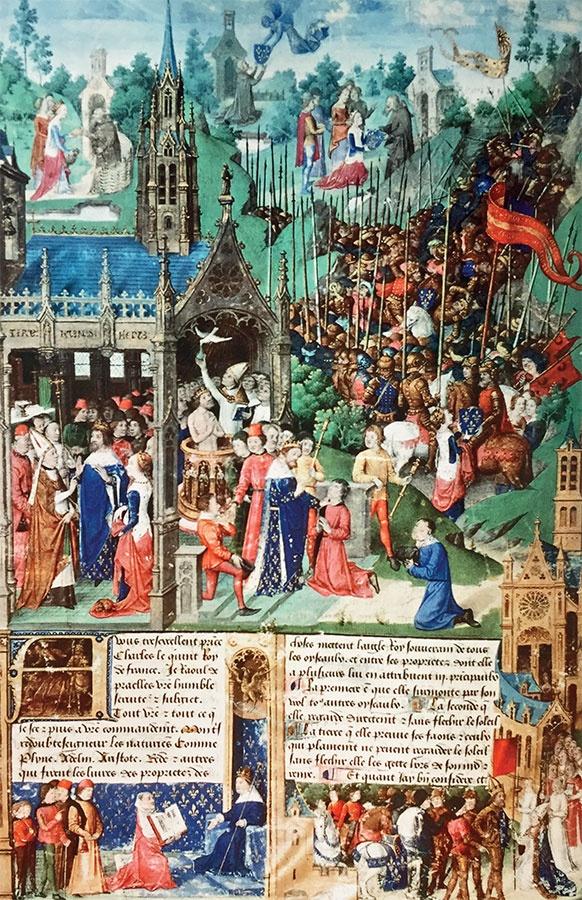 Vous tresexcellent prĩce
Charles le quint Roy
de france. Je Raoul de
praelles vr̃e humble
seruite᷑ ⁊ subgiet.
Tout vr̃e ⁊ tout ce q̃
je scẽ ⁊ puis a vr̃e commandemt̃. Mon tr̃
redoubte seigneur les natures Comme
Plyne. Adelm. Aristote. Bede ⁊ autres
qui firent les liures des proprietez des
choses mettent laigle Roy souuerain de tous
les oyseaulx. et entre ses proprietez dont elle
a plusieurs luy en attribuent iii. prĩcipaulx
La premiere ẽ que elle surmonte par son
vol to᷑ autres oyseaulx. La seconde q̃
elle regarde droitemt̃ ⁊ sans flechir le soleil
La tierce q̃ elle preuue ses faons ⁊ ceulx
qui plainemt̃ ne peuent regarder le soleil
sans flechir elle les gette hors de son nid ⁊
Et quant Jay biẽ considere et